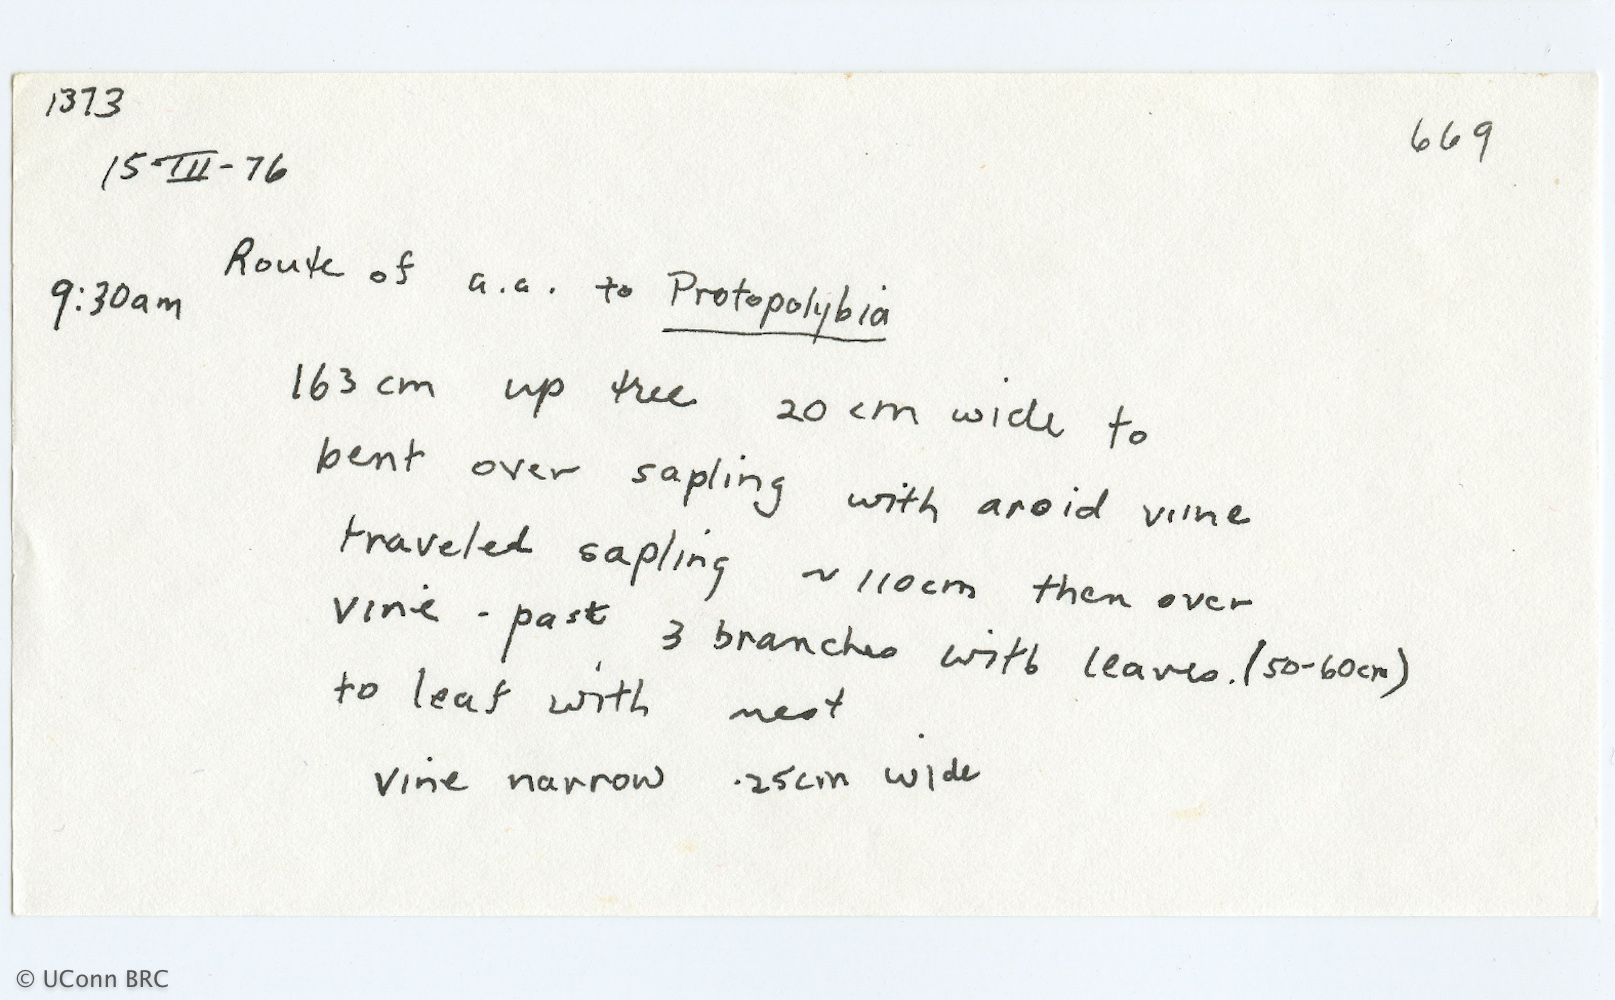 1373
669
15-III-76
9:30am Route of a.a. to Protopolybia
163 cm up tree 20 cm wide to
bent over sapling with aroid viine
traveled sapling ~ 110cm then over
vine - past 3 branches with leaves. (50-60cm)
to leaf with nest
vine narrow .25cm wide
© UConn BRC